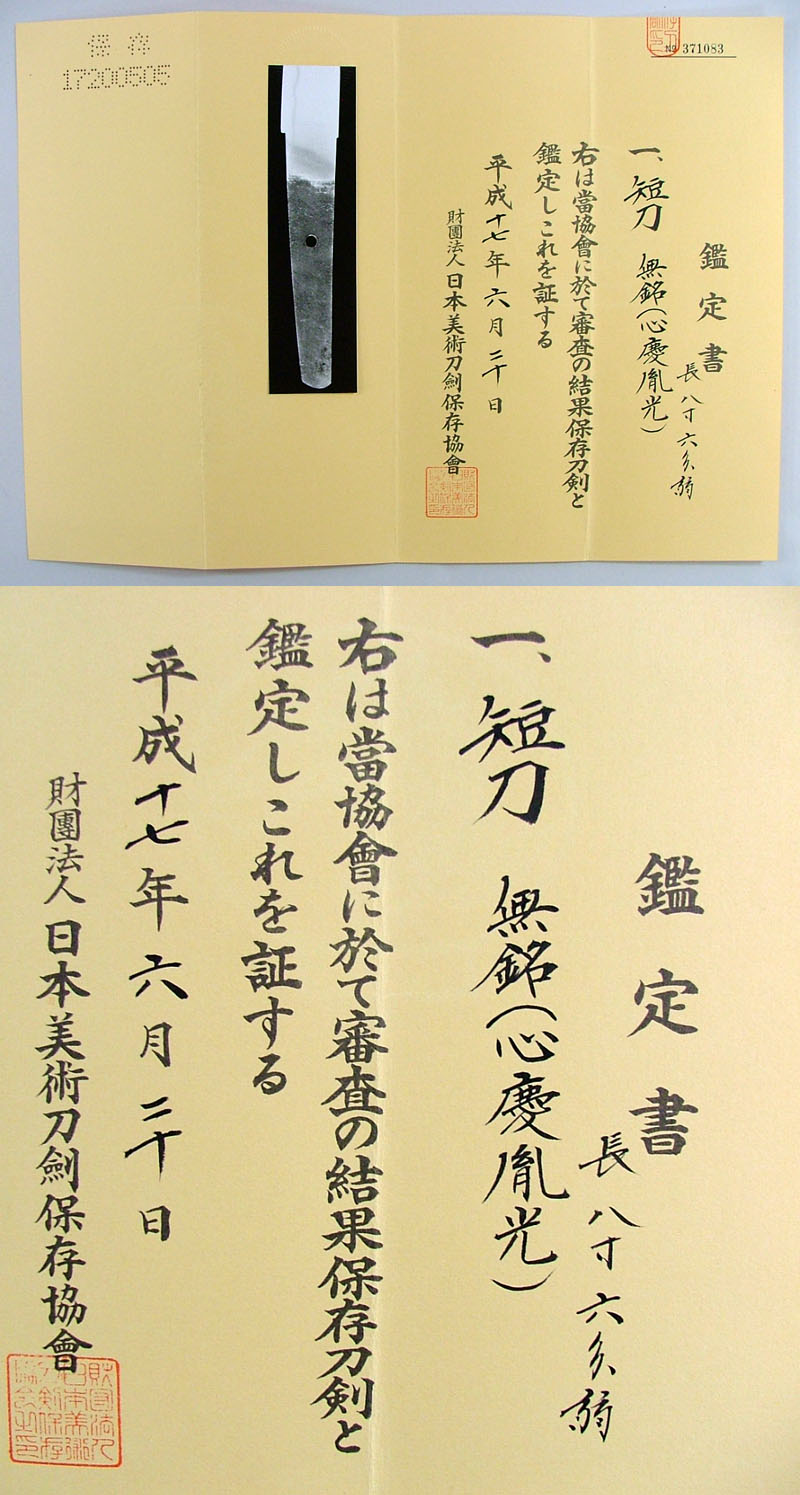 保存
17200505
№ 371083
鑑定書
長八寸六分弱
一、短刀 無銘(心慶胤光)
右は當協會に於て審査の結果保存刀剣と
鑑定しこれを証する
平成十七年六月二十日
財團法人日本美術刀劍保存協會
鑑定書
長八寸六分弱
一、短刀 無銘(心慶胤光)
右は當協會に於て審査の結果保存刀剣と
鑑定しこれを証する
平成十七年六月二十日
財團法人日本美術刀劍保存協會